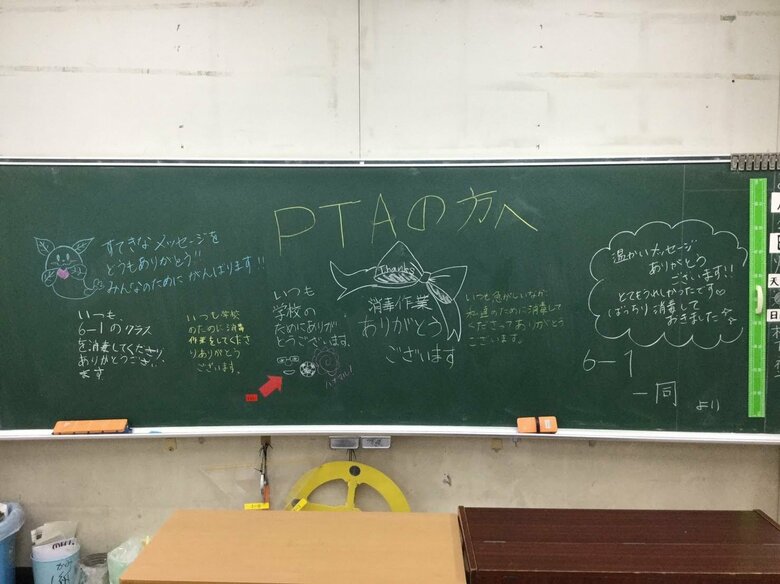 PTAの方へ
すてきなメッセージを
どうもありがとう!!
みんなのために がんばります!!
いつも、
6-1のクラス
を消毒してくださり、
ありがとうござい
ます
いつも学校
のために消毒
作業をしてくださ
りありがとう
ございます。
いつも
学校の
ためにありが
とうございます、
ハナマル!
Thanks
消毒作業
ありがとう
ございます
いつも忙がしいなか
私達のために消毒して
くださってありがとう
ございます。
温かいメッセージ
ありがとう
ございます!!
とてもうれしかったです♡
ばっちり消毒して
おきました
6-1
一同
より
天
日